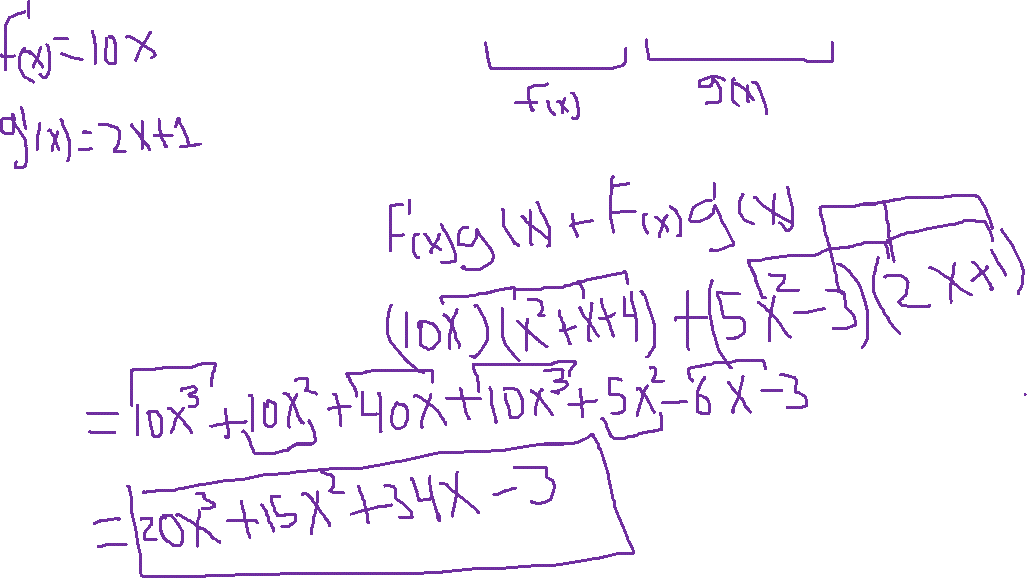 f'(x)=10x
f(x) g(x)
g'(x)=2x+1
F'(x)g(x)+F(x)g'(x)
(10x)(x²+x+4)+(5x²-3)(2x+1)
=10x³+10x²+40x+10x³+5x²-6x-3
=20x³+15x²+34x-3